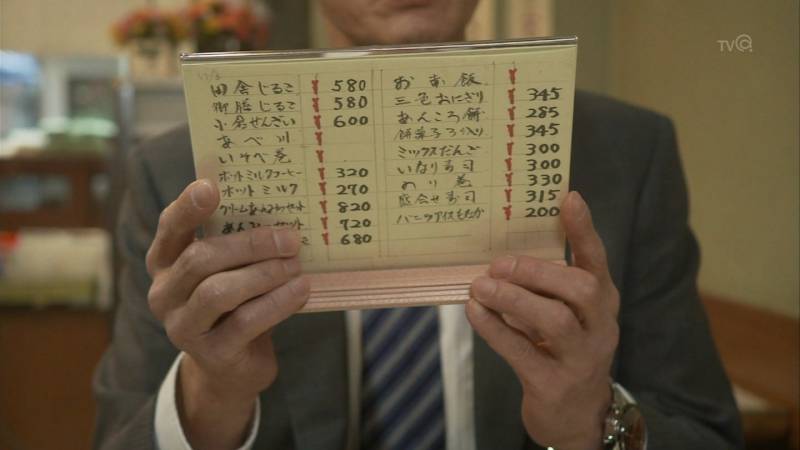 田舎じるこ ¥ 580
御膳じるこ ¥ 580
小倉ぜんざい ¥ 600
あべ川 ¥
いそべ巻 ¥
ホットミルクコーヒー ¥ 320
ホットミルク ¥ 270
クリームあんみつセット ¥ 820
あんみつセット ¥ 720
¥ 680
お赤飯 ¥
三色おにぎり ¥ 345
あんころ餅 ¥ 285
餅菓子3ヶ入り ¥ 345
ミックスだんご ¥ 300
いなり寿司 ¥ 300
のり巻 ¥ 330
盛合せ寿司 ¥ 315
バニラアイスもなか ¥ 200
TVQ